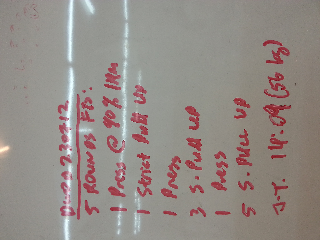 5 ROUNDS FT:
1 PRESS @ 90% 1RM
1 STRICT PULL UP
1 PRESS
3 S-PULL UP
1 PRESS
5 S. PULL UP
J.T. 14:09 (56 kg)